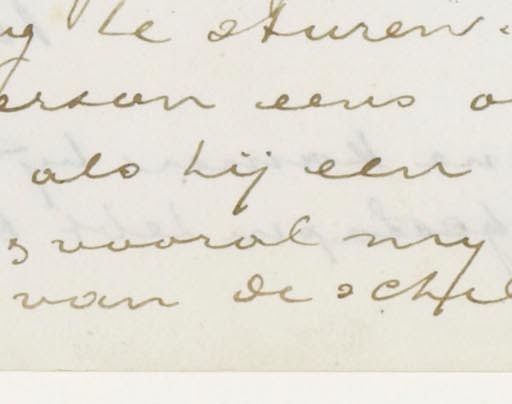 te sturen.
erson eens o
als hij een
s vooral my
van de schil